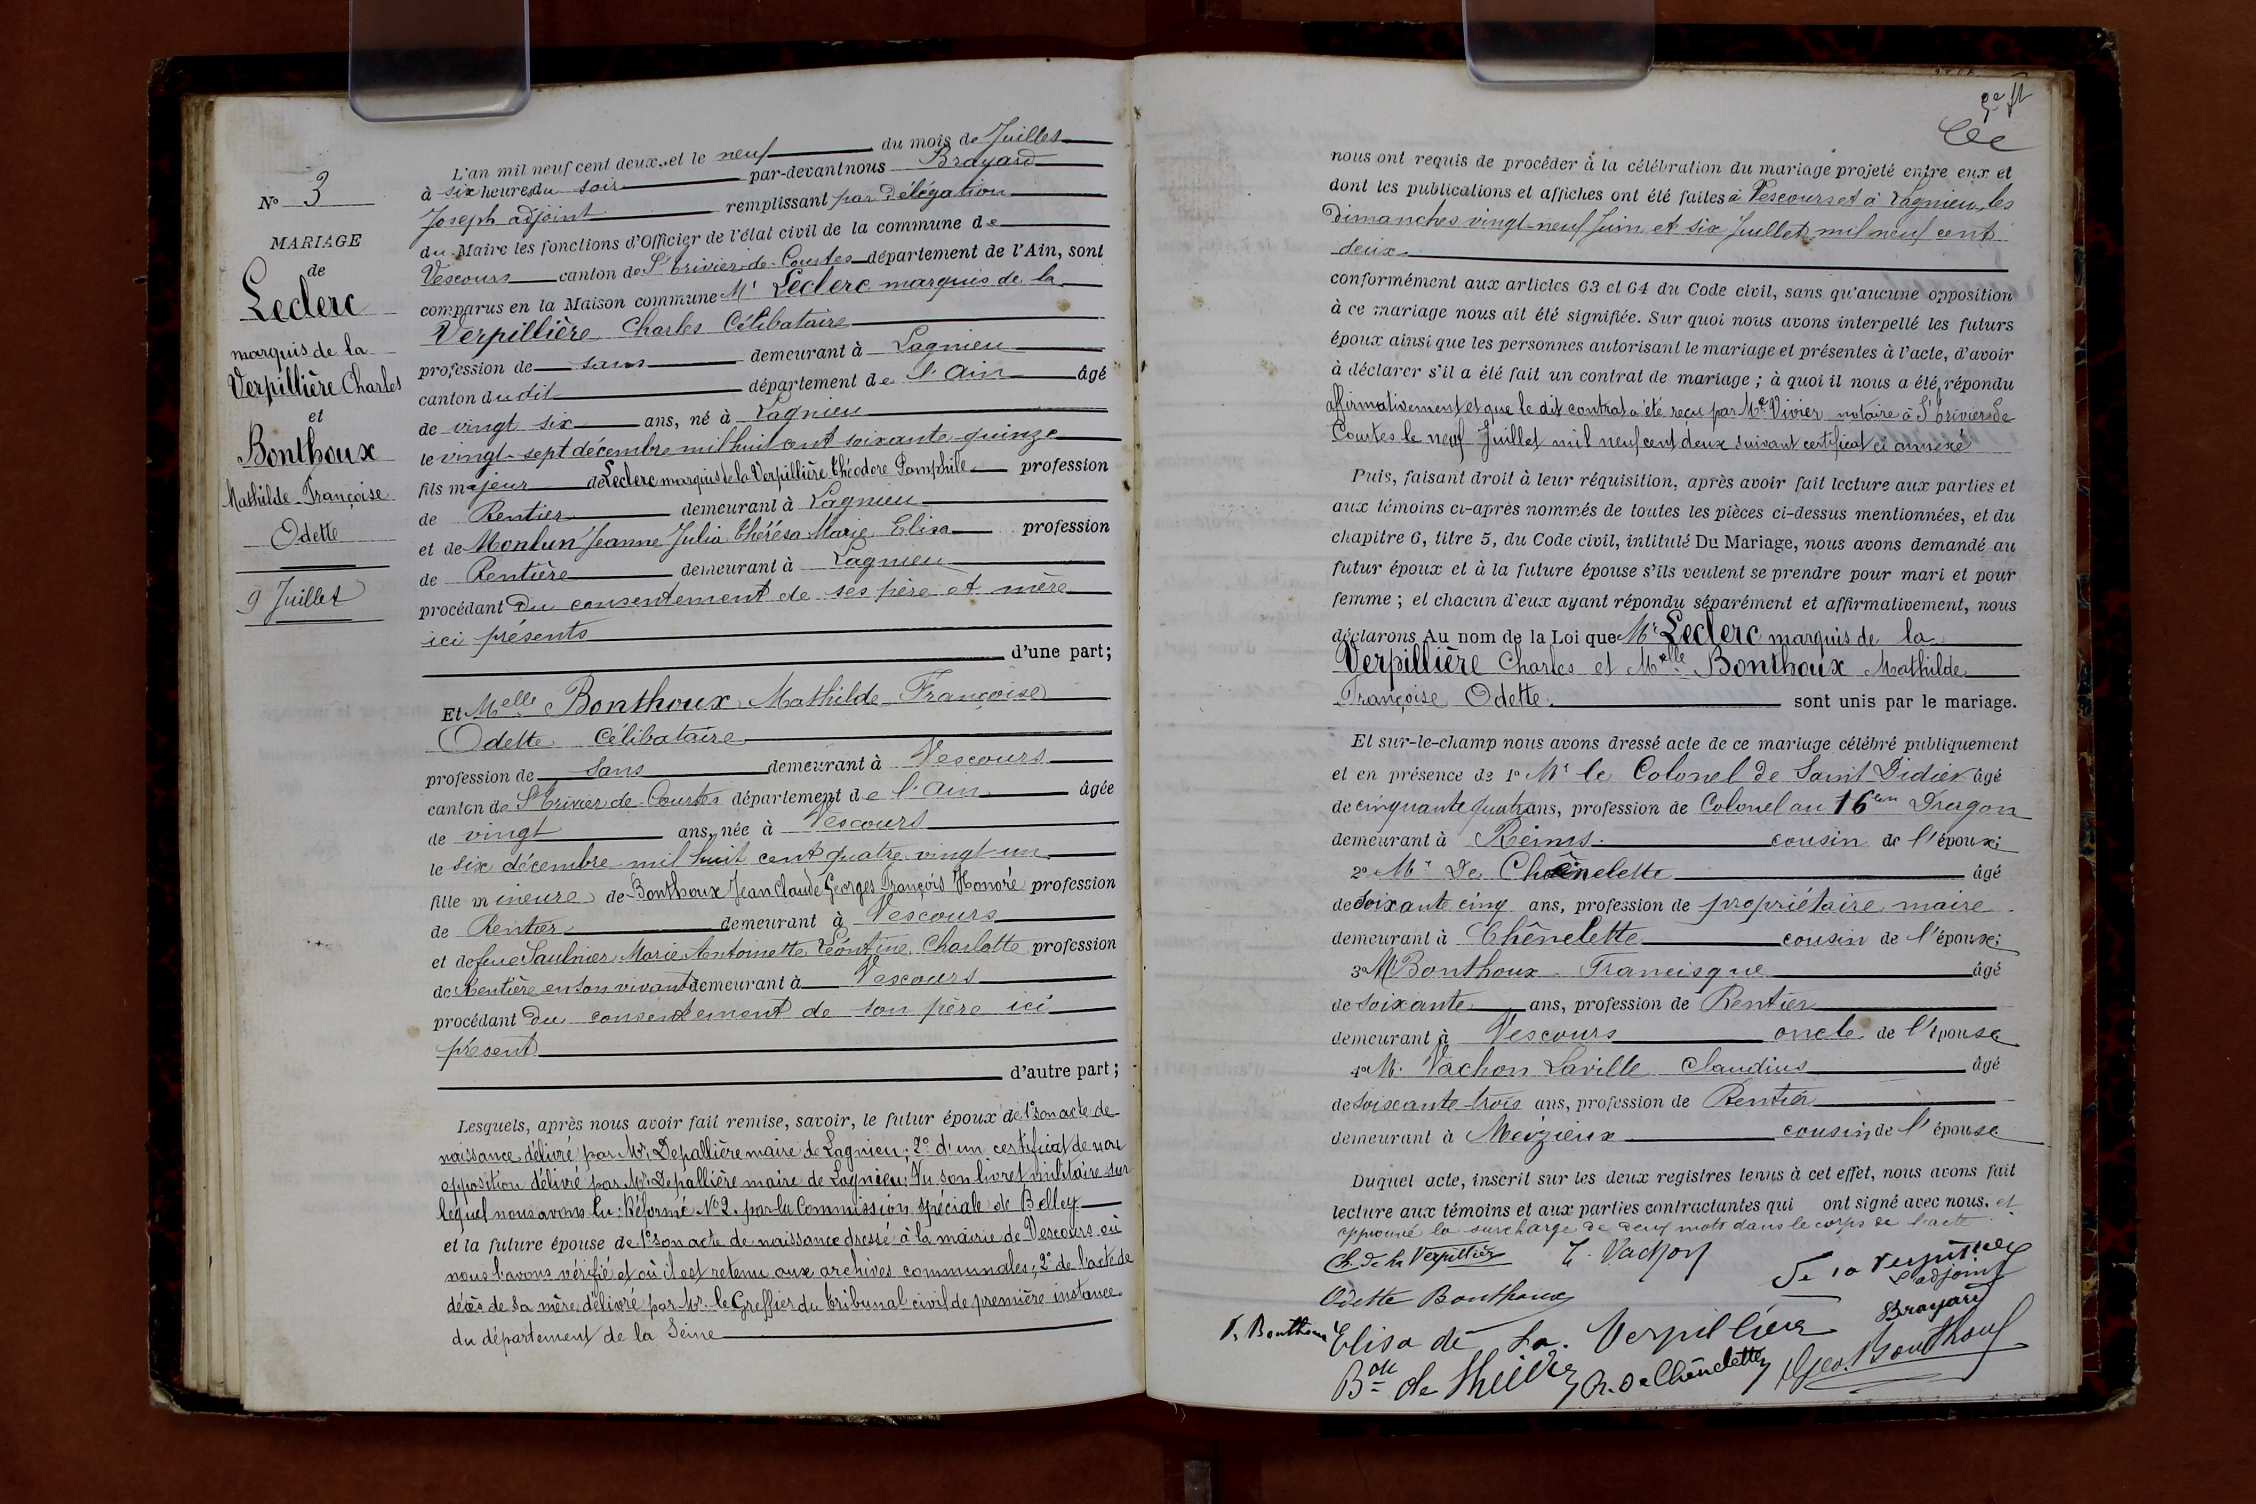 No 3
MARIAGE
de
Leclerc
marquis de la
Verpillière Charles
et
Bonthoux
Mathilde Françoise
Odette
9 Juillet
L'an mil neuf cent deux, et le neuf du mois de Juillet
à six heures du soir par-devant nous Brayard
Joseph adjoint remplissant par délégation
du Maire les fonctions d'Officier de l'état civil de la commune de
Vescours canton de St Trivier-de-Courtes département de l'Ain, sont
comparus en la Maison commune Mr Leclerc marquis de la
Verpillière Charles Célibataire
profession de sans demeurant à Lagnieu
canton du dit département de l'Ain âgé
de vingt six ans, né à Lagnieu
le vingt-sept décembre mil huit cent soixante quinze
fils majeur de Leclerc marquis de la Verpillière Théodore Pamphile profession
de Rentier demeurant à Lagnieu
et de Monlun Jeanne Julia Thérésa Marie Elisa profession
de Rentière demeurant à Lagnieu
procédant du consentement de ses père et mère
ici présents
d'une part;
Et Melle Bonthoux Mathilde Françoise
Odette Célibataire
profession de sans demeurant à Vescours
canton de St Trivier de Courtes département de l'Ain âgée
de vingt ans, née à Vescours
le six décembre mil huit cent quatre vingt un
fille mineure de Bonthoux Jean Claude Georges François Honoré profession
de Rentier demeurant à Vescours
et de feue Saulnier Marie Antoinette Léontine Charlotte profession
de Rentière en son vivant demeurant à Vescours
procédant du consentement de son père ici
présent
d'autre part;
Lesquels, après nous avoir fait remise, savoir, le futur époux de 1° son acte de
naissance délivré par Mr. Depallière maire de Lagnieu; 2° d'un certificat de non
opposition délivré par Mr Depallière maire de Lagnieu; Vu son livret militaire sur
lequel nous avons lu: Réformé No 2. par la Commission spéciale de Belley
et la future épouse de 1° son acte de naissance dressé à la mairie de Vescours où
nous l'avons vérifié et où il est retenu aux archives communales; 2° de l'acte de
décès de sa mère délivré par Mr. le Greffier du tribunal civil de première instance
du département de la Seine
nous ont requis de procéder à la célébration du mariage projeté entre eux et
dont les publications et affiches ont été faites à Vescours et à Lagnieu les
dimanches vingt-neuf Juin et six Juillet mil neuf cent
deux
conformément aux articles 63 et 64 du Code civil, sans qu'aucune opposition
à ce mariage nous ait été signifiée. Sur quoi nous avons interpellé les futurs
époux ainsi que les personnes autorisant le mariage et présentes à l'acte, d'avoir
à déclarer s'il a été fait un contrat de mariage; à quoi il nous a été répondu
affirmativement et que le dit contrat a été reçu par Me Vivier notaire à St Trivier de
Courtes le neuf Juillet mil neuf cent deux suivant certificat ci annexé
Puis, faisant droit à leur réquisition, après avoir fait lecture aux parties et
aux témoins ci-après nommés de toutes les pièces ci-dessus mentionnées, et du
chapitre 6, titre 5, du Code civil, intitulé Du Mariage, nous avons demandé au
futur époux et à la future épouse s'ils veulent se prendre pour mari et pour
femme; et chacun d'eux ayant répondu séparément et affirmativement, nous
déclarons Au nom de la Loi que Mr Leclerc marquis de la
Verpillière Charles et Melle Bonthoux Mathilde
Françoise Odette. sont unis par le mariage.
Et sur-le-champ nous avons dressé acte de ce mariage célébré publiquement
et en présence de 1° Mr le Colonel de Saint Didier âgé
de cinquante quatre ans, profession de Colonel au 16em Dragon
demeurant à Reims. cousin de l'époux;
2° Mr De Chênelette âgé
de soixante cinq ans, profession de propriétaire maire
demeurant à Chênelette cousin de l'épouse;
3° Mr Bonthoux Francisque âgé
de soixante ans, profession de Rentier
demeurant à Vescours oncle de l'épouse
4° M. Vachon Laville Claudius âgé
de soixante-trois ans, profession de Rentier
demeurant à Meizieux cousin de l'épouse
Duquel acte, inscrit sur les deux registres tenus à cet effet, nous avons fait
lecture aux témoins et aux parties contractantes qui ont signé avec nous. et
approuvé la surcharge de deux mots dans le corps de l'acte.
Ch. de la Verpillière Vachon de la Verpillière
L'adjoint
Odette Bonthoux Brayard
F. Bonthoux Elisa de La. Verpillière
de Chênelette Geo. Bonthoux